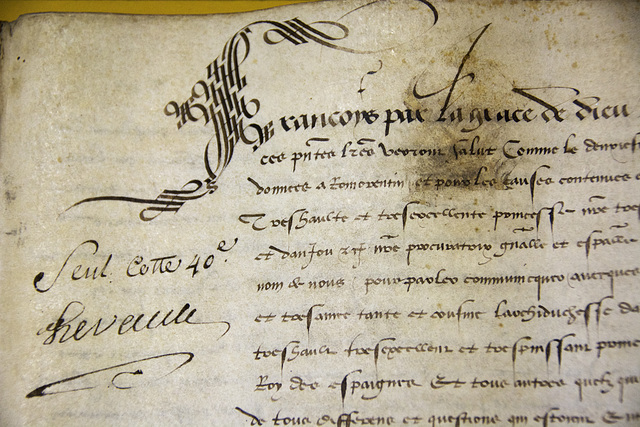 Francoys par la grace de dieu
ces pntes lres verront salut Comme le
donnees a Romorentin et pour les causes contenues
Treshaulte et tresexcellente princesse nre
et danjou nre procuratory gnalle et
nom de nous pour parler communicquer avecques
et tresamee tante et cousine Larchiduchesse da
treshault tresexcellent et trespuissant
Roy des espaignes Et tous autres
de tous differens et questions qui estoient
Seul. Cotte 40e.